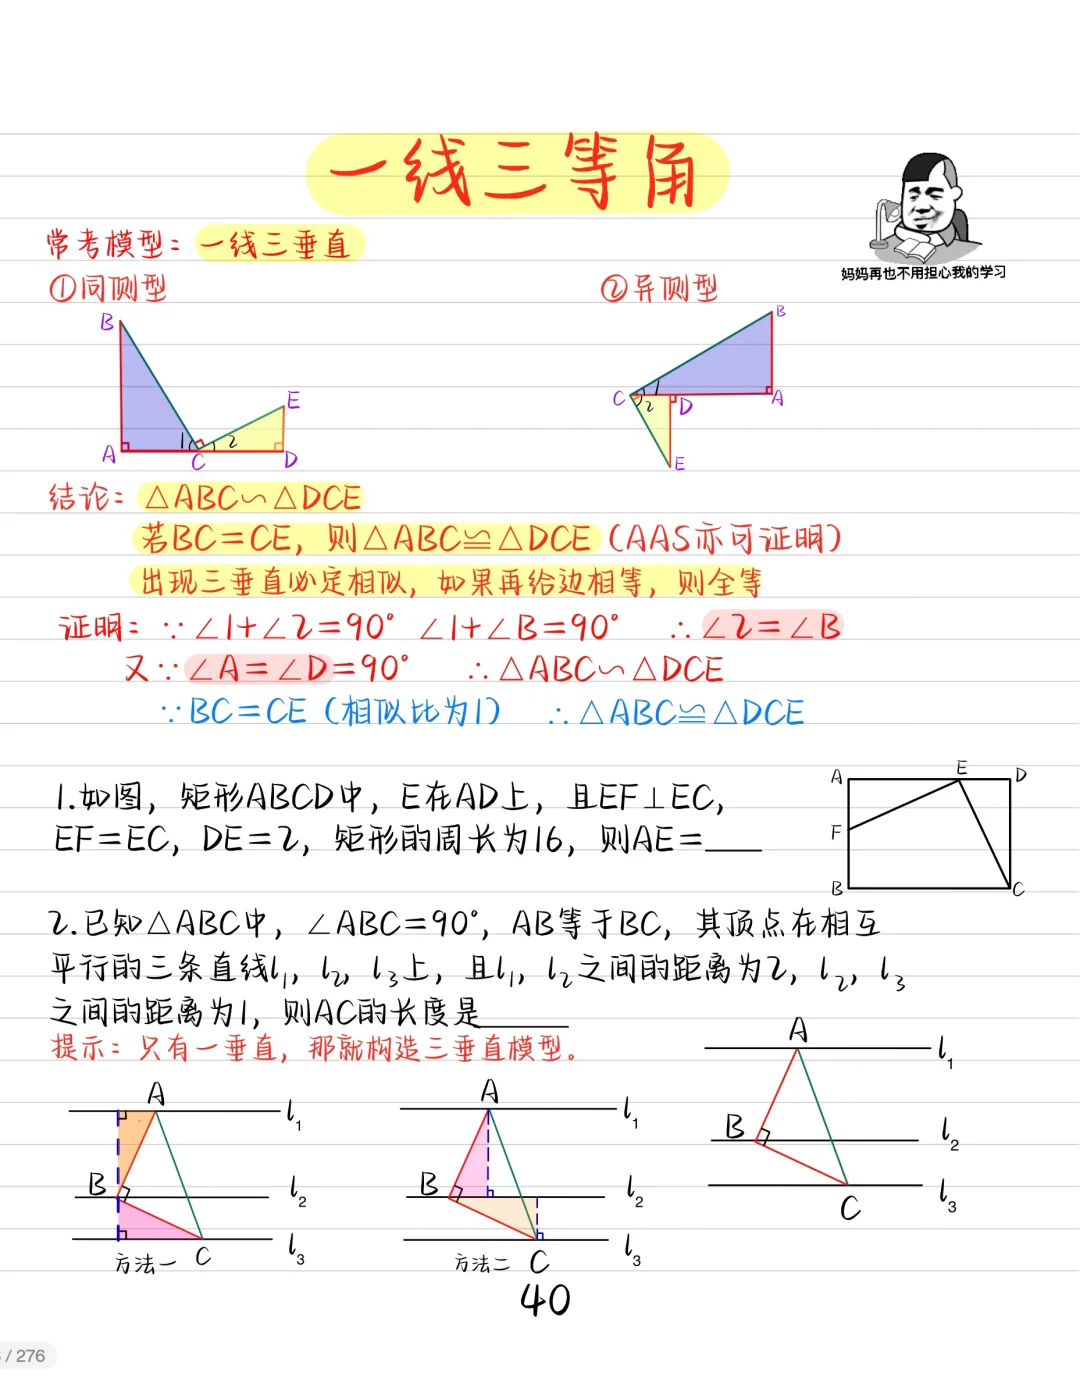 一线三等角
妈妈再也不用担心我的学习
常考模型：一线三垂直
①同侧型 ②异侧型
B E A C D 1 2
B C D A E 1 2
结论：△ABC∽△DCE
若BC=CE，则△ABC≌△DCE（AAS亦可证明）
出现三垂直必定相似，如果再给边相等，则全等
证明：∵∠1+∠2=90° ∠1+∠B=90° ∴∠2=∠B
又∵∠A=∠D=90° ∴△ABC∽△DCE
∵BC=CE（相似比为1） ∴△ABC≌△DCE
1.如图，矩形ABCD中，E在AD上，且EF⊥EC，
EF=EC，DE=2，矩形的周长为16，则AE=____
A E D
F
B C
2.已知△ABC中，∠ABC=90°，AB等于BC，其顶点在相互
平行的三条直线l₁，l₂，l₃上，且l₁，l₂之间的距离为2，l₂，l₃
之间的距离为1，则AC的长度是______
提示：只有一垂直，那就构造三垂直模型。
A l₁
B l₂
C l₃
方法一
A l₁
B l₂
C l₃
方法二
A l₁
B l₂
C l₃
40
/ 276